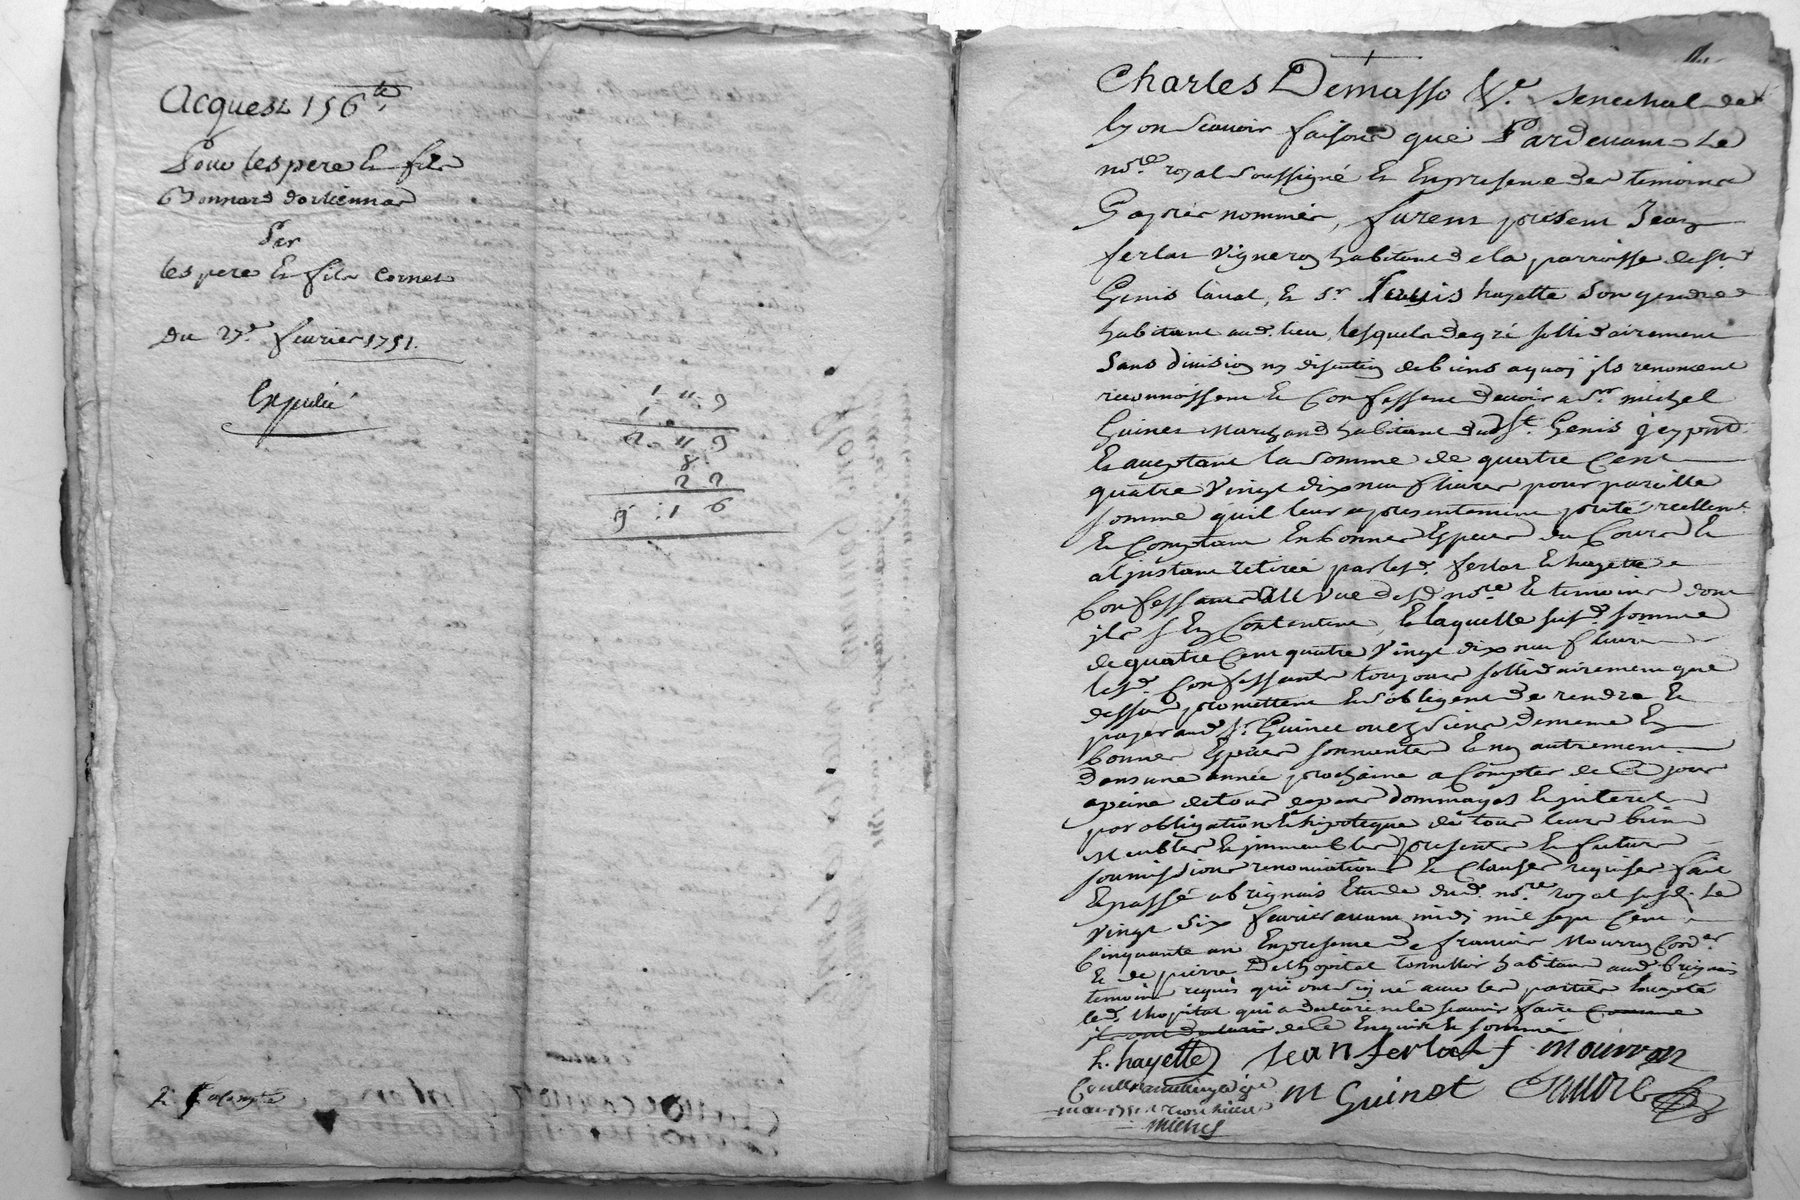 Acquest 156 lt
Pour les pere & fils
Bonnard dorliennas
Par
les pere & fils Cornet
Du 27e fevrier 1751.
Expedié
1 11 9
2 11 9
8
2 2
9 : 1 6
Charles Demasso Sr. Senechal de
lyon scavoir faisons que Pardevant Le
nore royal soussigné & En presence des temoins
Cy apres nommés, furent present Jean
ferlat Vigneron habitant de la parroisse de St
Genis laval, & Sr Louis hayette son gendre
habitant aud. lieu, lesquels de gré sollidairement
sans division ny discution de biens a quoy ils renoncent
reconnoissent & Confessent devoir a Sr michel
Guinet Marchand habitant dud St. Genis icy pnt
& acceptant la somme de quatre Cent
quatre Vingt dix neuf livres pour pareille
somme quil leur a presentement preté reellemt
& Comptant En bonnes Especes du Cours &
a linstant retirée par lesd. ferlat & hayette
Confessants au Vue desd nore & temoins dont
ils sen Contentent, & laquelle susd somme
de quatre Cent quatre Vingt dix neuf livres
lesd. Confessants toujours sollidairement que
dessus promettent & sobligent de rendre &
payer aud Sr Guinet ou es siens de meme En
bonnes Especes sonnantes & non autrement
dans une année prochaine a Compter de Ce jour
a peine de tous depens dommages & interets
par obligation & hipoteque de tous leurs biens
Meubles & immeubles presents & futurs
soumissions renonciations & Clauses requises fait
& passé a brignais Etude dud. nore royal susd. Le
Vingt six fevrier avant midi mil sept Cent
Cinquante un En presence de francois Mourron Cordr
& de pierre Delhopital tonnellier habitant aud brignais
temoins requis qui ont signé avec les parties Excepté
led. lhopital qui a declaré ne le scavoir faire Comme
ils ont declaré de Ce Enquis & sommé
h. hayette Jean ferlat f. mourron
M Guinet
michel